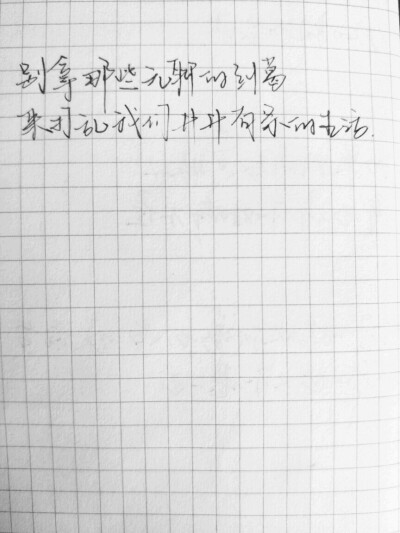 别拿那些无聊的纠葛
来打乱我们井井有条的生活.